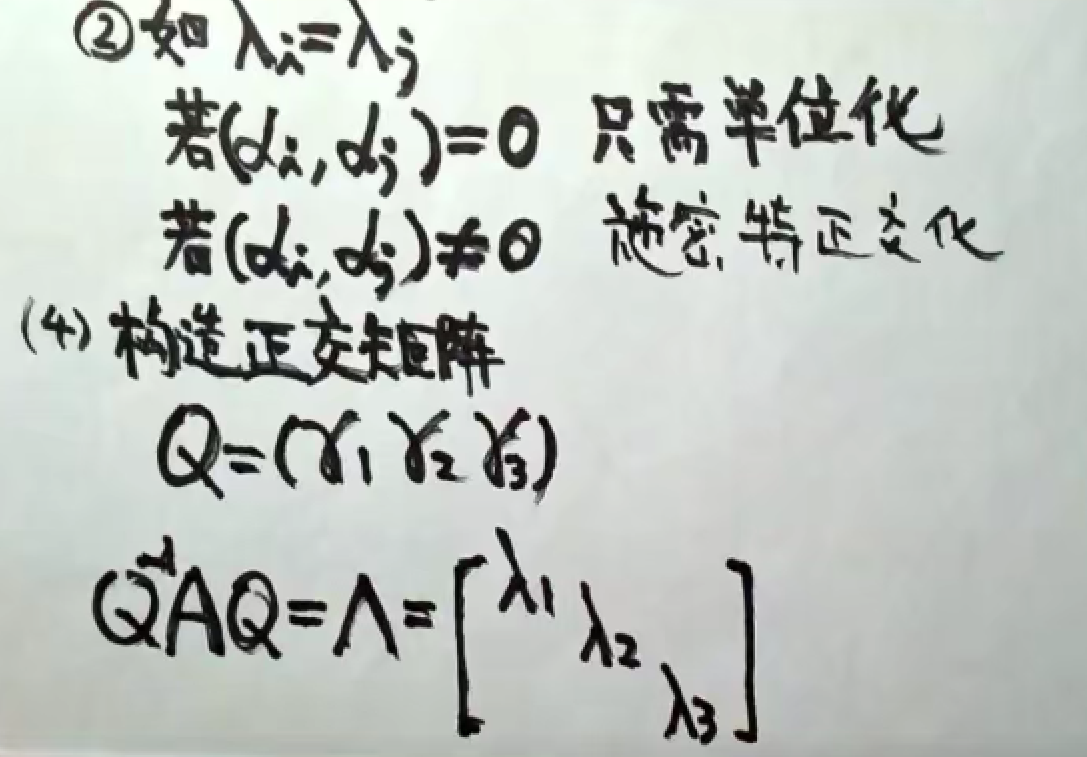 ②如 λi=λj
若(αi,αj)=0 只需单位化
若(αi,αj)≠0 施密特正交化
(4) 构造正交矩阵
Q=(γ1 γ2 γ3)
Q⁻¹AQ=Λ=[λ1 λ2 λ3]